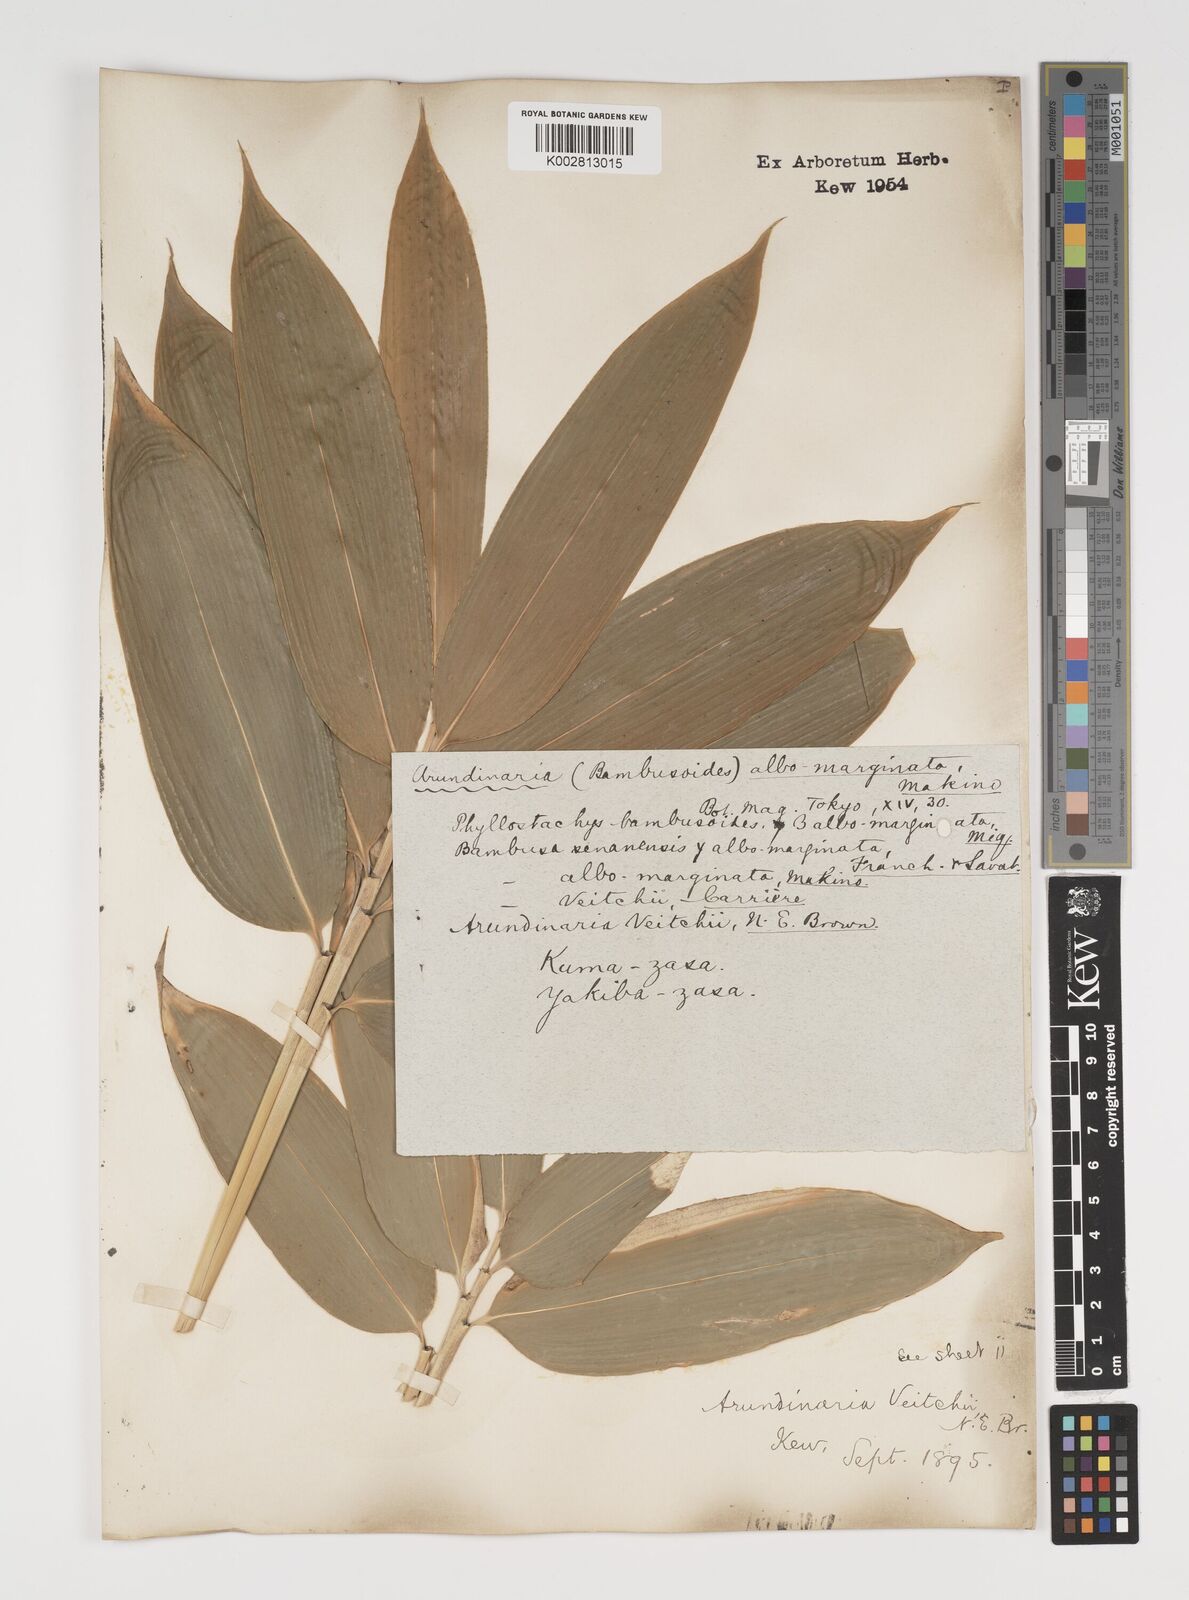 I
ROYAL BOTANIC GARDENS KEW
K002813015
Ex Arboretum Herb.
Kew 1954
Arundinaria (Bambusoides) albo-marginata,
Makino
Bot. Mag. Tokyo, XIV, 30.
Phyllostachys bambusoides, β albo-marginata,
Miq.
Bambusa senanensis γ albo-marginata,
Franch. & Savat.
— albo-marginata, Makino.
— Veitchii, Carrière
Arundinaria Veitchii, N. E. Brown.
Kuma-zasa.
Yakiba-zasa.
see sheet ii
Arundinaria Veitchii,
N. E. Br.
Kew,
Sept. 1895.
centimeters
M001051
Don Williams
Density
Royal Botanic Gardens
Kew
copyright reserved
0 1 2 3 4 5 6 7 8 9 10
cm